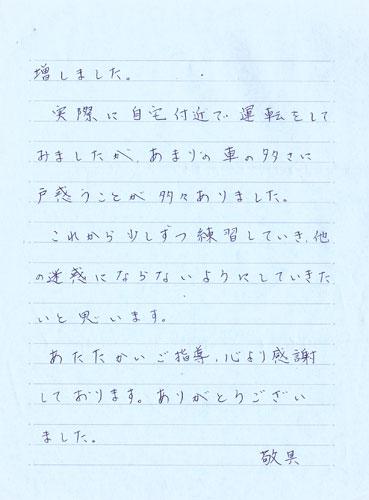 増しました。
実際に自宅付近で運転をして
みましたが、あまりの車の多さに
戸惑うことが多々ありました。
これから少しずつ練習していき、他
の迷惑にならないようにしていきた
いと思います。
あたたかいご指導、心より感謝
しております。ありがとうござい
ました。
敬具